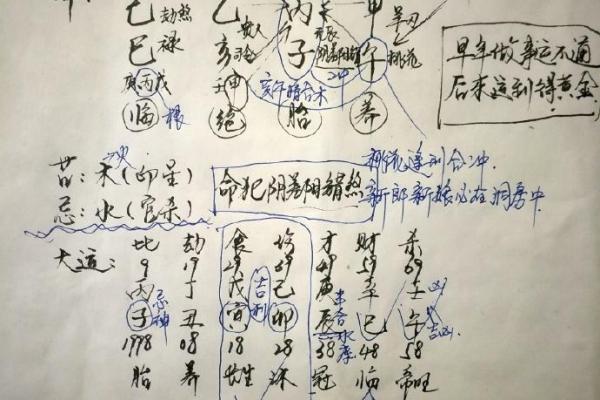 己 劫煞 乙 贵人 丙 甲 羊刃
巳 禄 亥 子 阴差阳错 午 桃花
庚丙戊 壬甲 冲
临 根 绝 亥午暗合木 胎 养
早年做事运不通
后来运到得黄金
昔：木火（印星）
忌：水（官杀）
命犯阴差阳错煞
桃花逢到合冲
新郎新娘必在洞房中
大运：比 劫 食 伤 才 财 杀
9 19 29 39 49 59 69
丙 丁 戊 己 庚 辛 壬
子 忌神 丑 寅 吉利 卯 辰 巳 午 吉凶
1998 08 18 28 38 48 58
胎 养 长生 沐 冠 临 帝旺